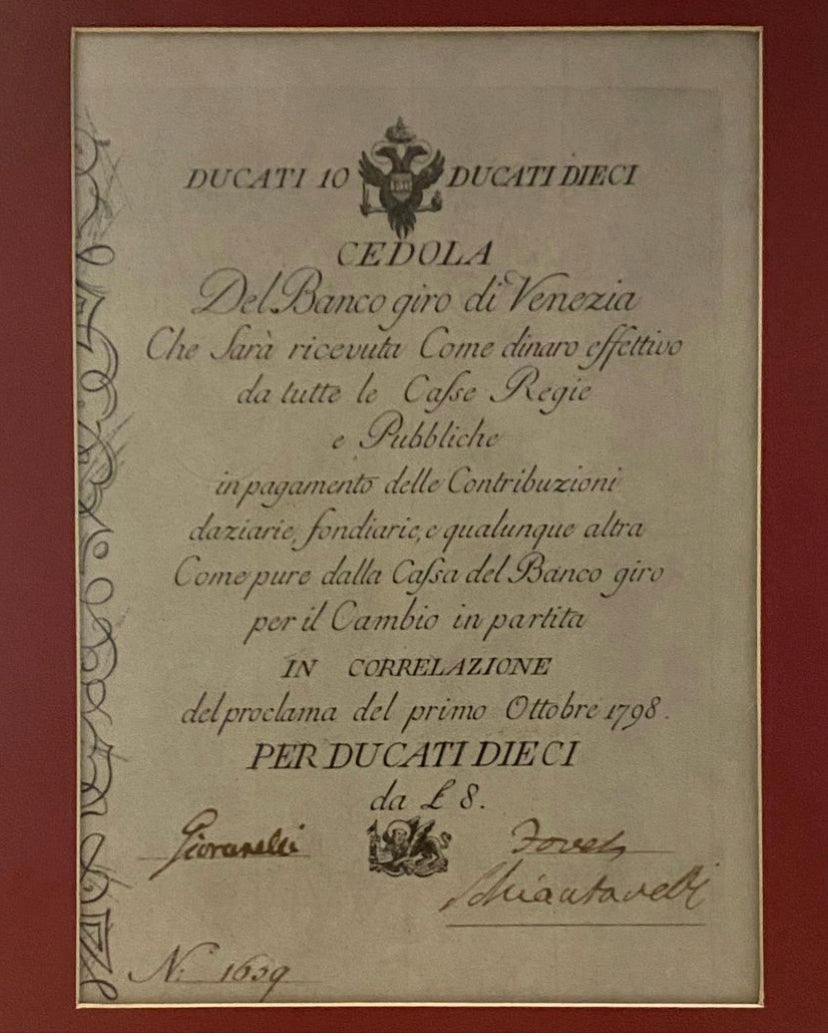 DUCATI 10 DUCATI DIECI
CEDOLA
Del Banco giro di Venezia
Che Sarà ricevuta Come dinaro effettivo
da tutte le Caſse Regie
e Pubbliche
in pagamento delle Contribuzioni
daziarie, fondiarie, e qualunque altra
Come pure dalla Caſsa del Banco giro
per il Cambio in partita
IN CORRELAZIONE
del proclama del primo Ottobre 1798.
PER DUCATI DIECI
da £ 8.
Giovanelli
N: 1609